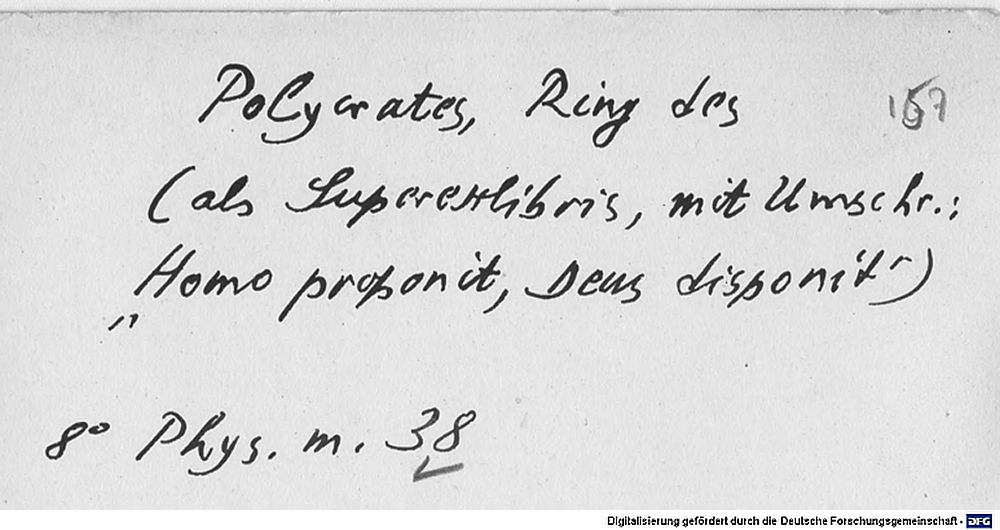 Polycrates, Ring des
(als Superexlibris, mit Umschr.:
„Homo proponit, Deus disponit")
8° Phys. m. 38
Digitalisierung gefördert durch die Deutsche Forschungsgemeinschaft - DFG